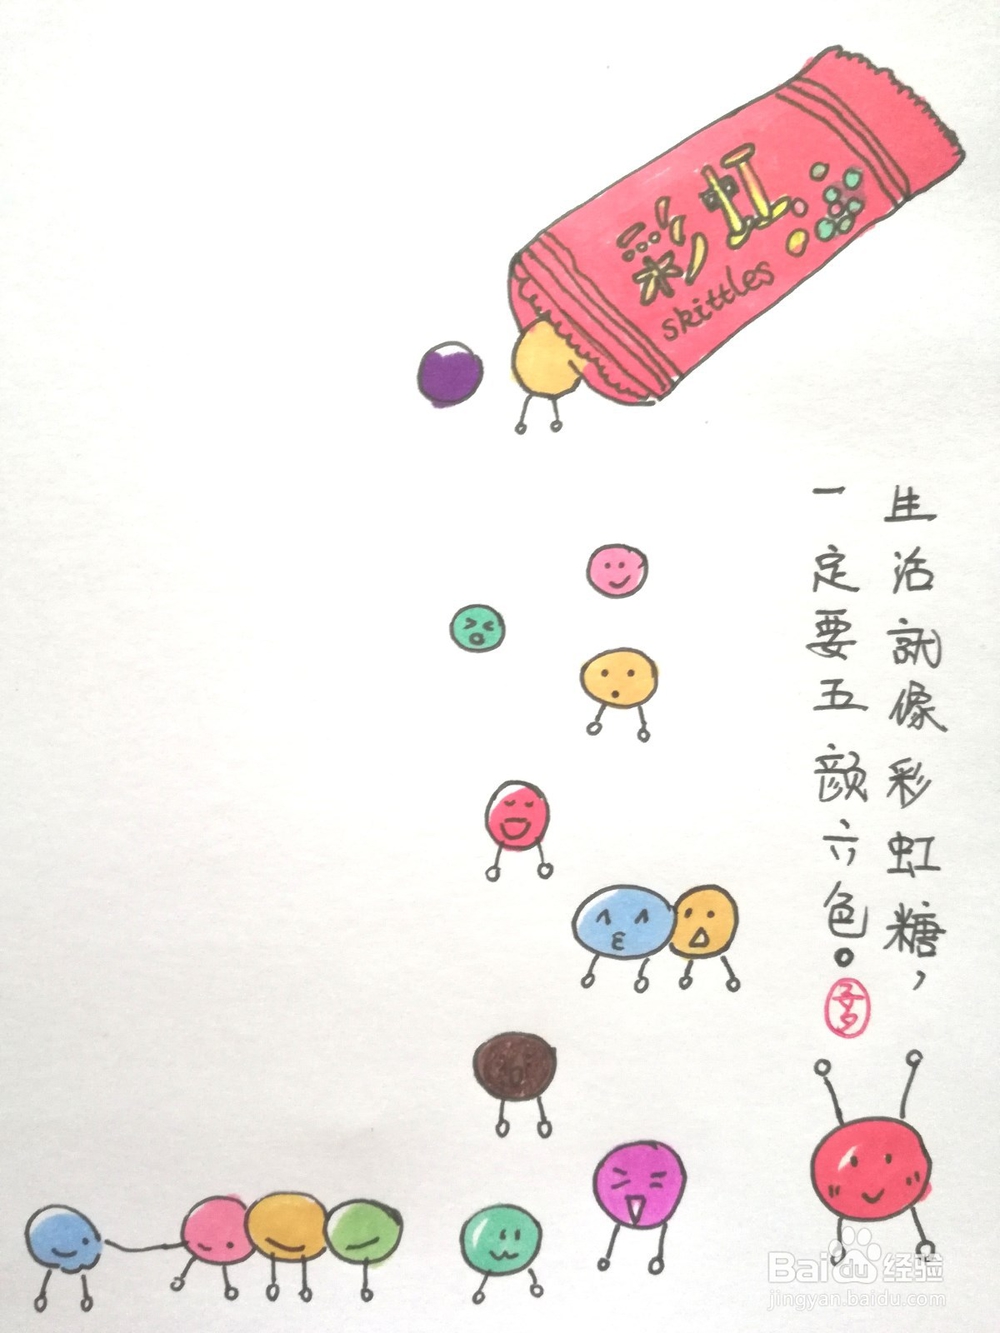 彩虹
skittles
生活就像彩虹糖，
一定要五颜六色。
Baidu经验
jingyan.baidu.com